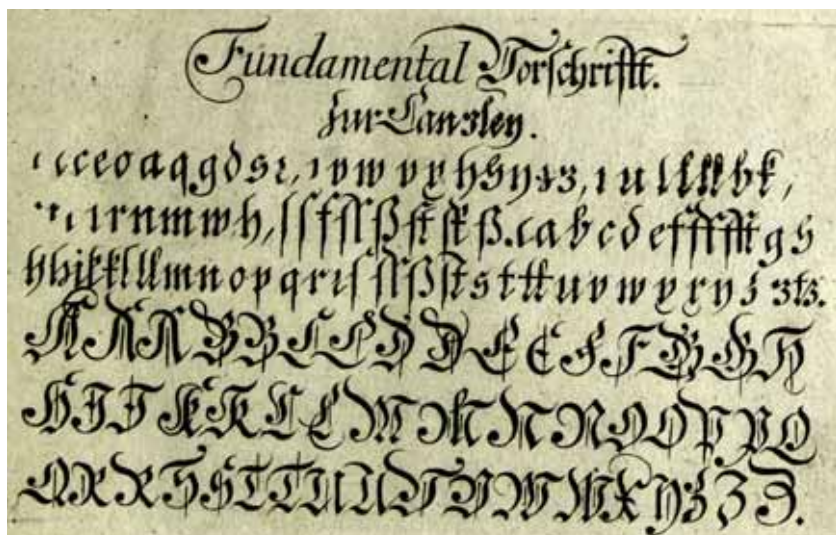 Fundamental Vorschrifft.
zur Canzley.
ı c c e o a q g d s r, ı v w v y h s y z z, ı u l l l k b k,
ı ı ı r n m w h, ſ ſ f ſſ ß ſt ſk ß. a b c d e f ff fft g h
h h i j k k l ll m n o p q r ı ſ ſſ ß ſt s t tt u v w x y z z tz.
A A A B B C C D D E E F F G G H
H I J K K L L M M N N O O P P Q
Q R R S S T T U U V V W W X Y Z Z Z.